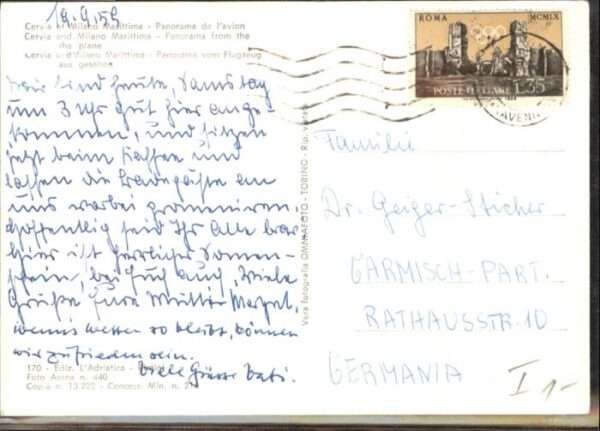 19.9.59
Cervia et Milano Marittima - Panorama de l'avion
Cervia and Milano Marittima - Panorama from the
the plane
Cervia und Milano Marittima - Panorama vom Flugzeug
aus gesehen
Wir sind heute, Samstag
um 3 Uhr gut hier ange-
kommen, und sitzen
jetzt beim Kaffee und
lassen die Badegäste an
uns vorbei promenieren.
Hoffentlich seid Ihr alle brav
hier ist herrlicher Sonnen-
schein, bei Euch auch? Viele
Grüße Eure Mutti
wenns Wetter so bleibt, können
wir zufrieden sein.
Viele Grüsse Vati.
170 - Ediz. L'Adriatica
Foto Aerea n. 440
Copia n. 13.222 - Concess. Min. n.
Vera fotografia OMNIAFOTO - TORINO - Rip. vietata
ROMA MCMLX
POSTE ITALIANE L.35
Familie
Dr. Geiger-Sticher
GARMISCH-PART.
RATHAUSSTR. 10
GERMANIA
I 1-